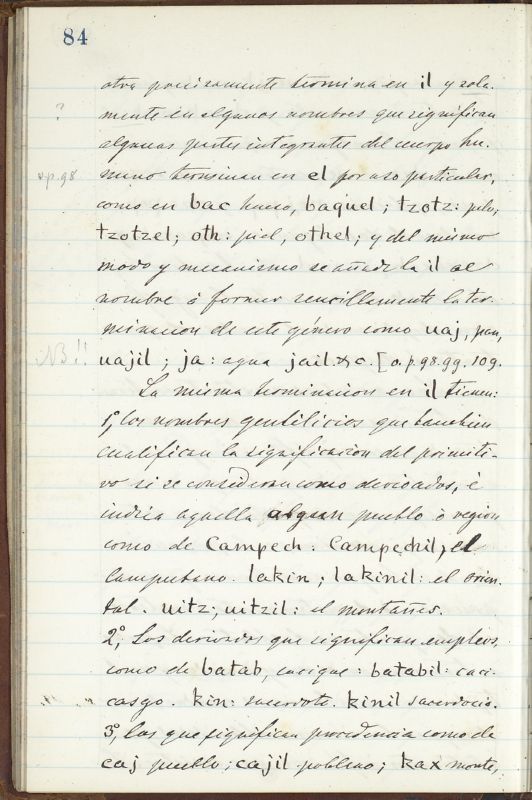 84
otra precisamente termina en il y sola-
?
mente en algunos nombres que significan
algunas partes integrantes del cuerpo hu-
v.p. 98
mano terminan en el por uso particular,
como en bac hueso, baquel; tzotz: pelo,
tzotzel; oth: piel, othel; y del mismo
modo y mecanismo se añade la il al
nombre ó formar sencillamente la ter-
minacion de este género como uaj, pan,
NB!!
uajil; ja: agua jail. &c. [v. p. 98. 99. 109.
La misma terminacion en il tienen:
1º, los nombres gentilicios que tambien
cualifican la significacion del primiti-
vo si se consideran como derivados, é
indica aquella algun pueblo ò region
como de Campech: Campechil, el
Campechano. lakin; lakinil: el orien-
tal. uitz; uitzil: el montañes.
2º, Los derivados que significan empleos
como de batab, cacique: batabil: caci-
casgo. kin: sacerdote. kinil sacerdocio.
3º, los que significan procedencia como de
caj pueblo; cajil poblano; kax monte,